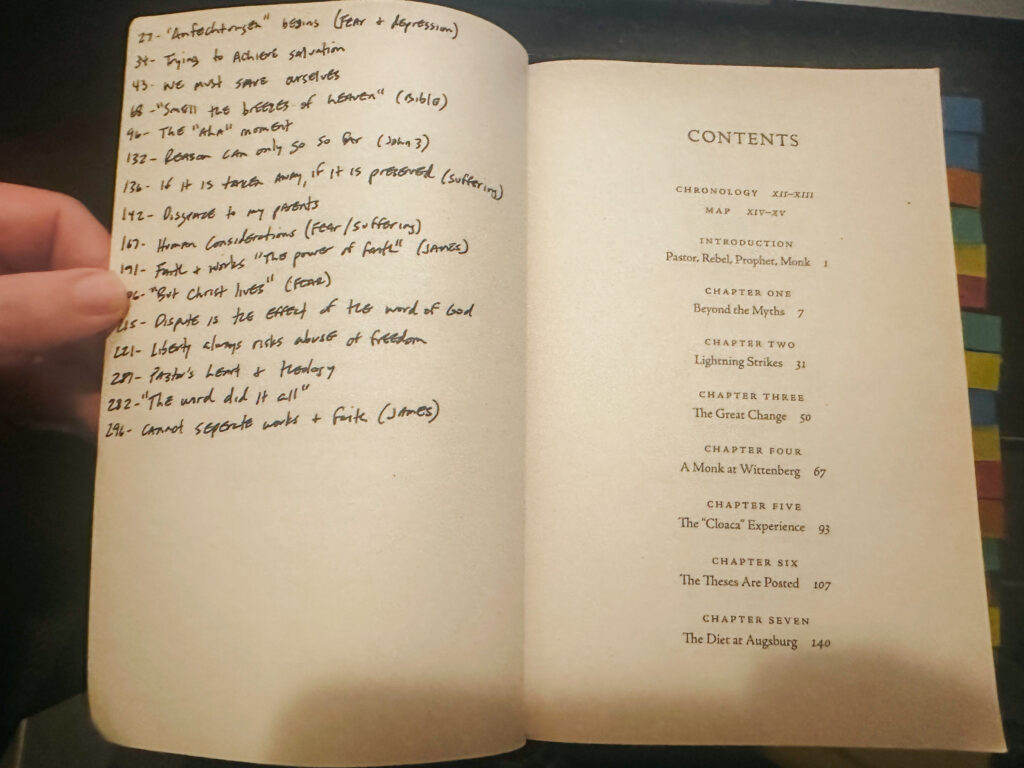 27- "Anfechtungen" begins (Fear + depression)
34- Trying to Achieve salvation
43- we must save ourselves
68-"Smell the breezes of heaven" (Bible)
96- The "AhA" moment
132- Reason can only go so far (John 3)
136- If it is taken away, if it is preserved (suffering)
142- Disgrace to my parents
167- Human Considerations (Fear/Suffering)
191- Faith + works "The power of faith" (James)
"But Christ lives" (Fear)
Dispute is the effect of the word of God
221- Liberty always risks abuse of freedom
Pastor's heart & theology
282-"The word did it all"
296- cannot seperate works + faith (James)
CONTENTS
CHRONOLOGY XII–XIII
MAP XIV–XV
INTRODUCTION
Pastor, Rebel, Prophet, Monk 1
CHAPTER ONE
Beyond the Myths 7
CHAPTER TWO
Lightning Strikes 31
CHAPTER THREE
The Great Change 50
CHAPTER FOUR
A Monk at Wittenberg 67
CHAPTER FIVE
The "Cloaca" Experience 93
CHAPTER SIX
The Theses Are Posted 107
CHAPTER SEVEN
The Diet at Augsburg 140